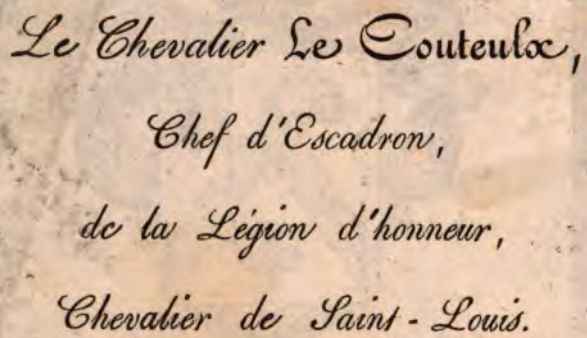 Le Chevalier Le Couteulx,
Chef d'Escadron,
de la Légion d'honneur,
Chevalier de Saint-Louis.